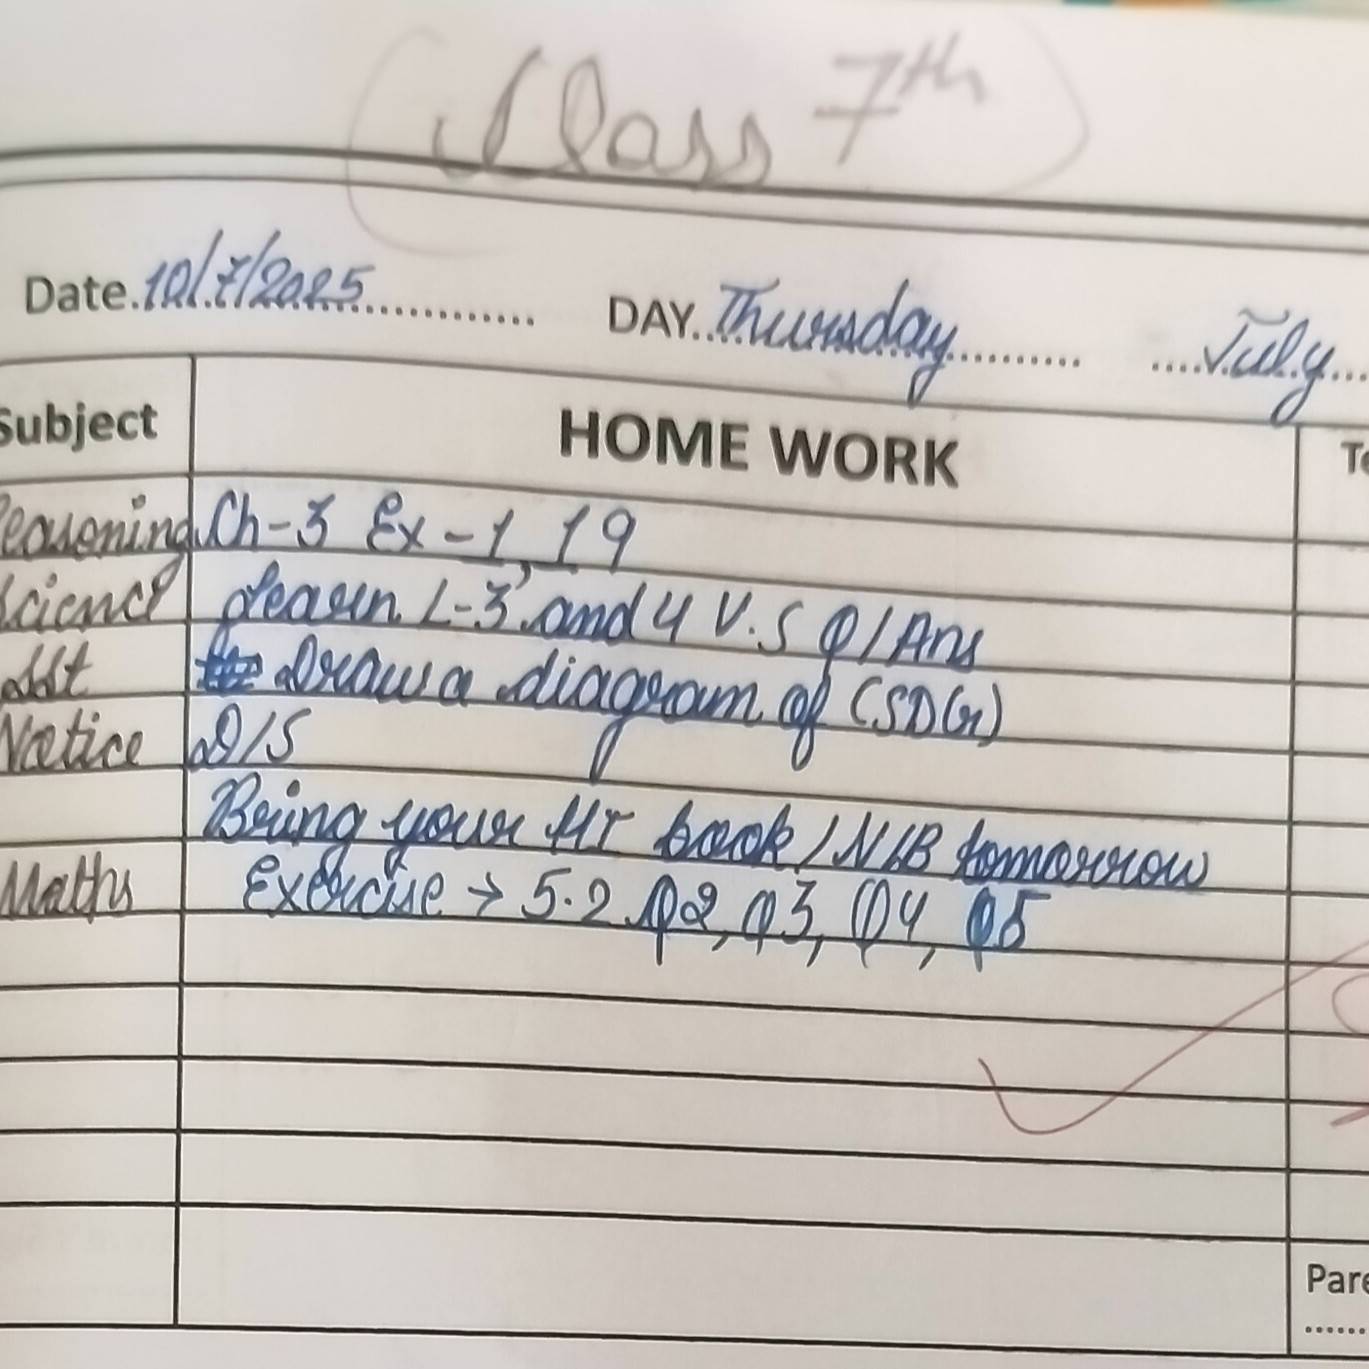 (Class 7th)
Date. 10/7/2025 DAY. Thursday July
Subject HOME WORK
Reasoning Ch-3 Ex-1, 19
Science Learn L-3, and 4 V.S Q/Ans
Draw a diagram of (SDG)
Notice D/S
Bring your book/N/B tomorrow
Maths Exercise → 5.2 Q2, Q3, Q4, Q5